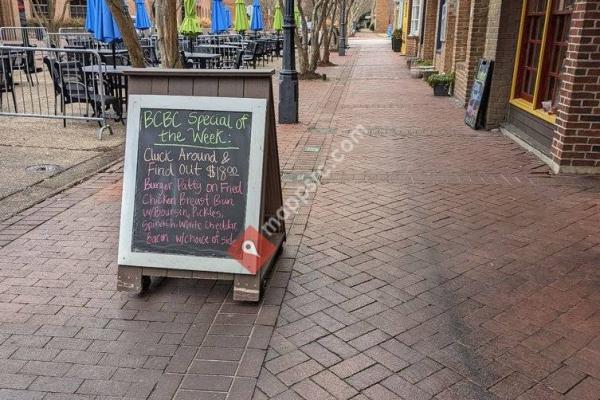 BCBC Special of
the Week:
Cluck Around &
Find Out $18.00
Burger Patty on Fried
Chicken Breast Bun
w/Boursin, Pickles,
Spinach, White Cheddar
Bacon w/choice of side
mapstr.com